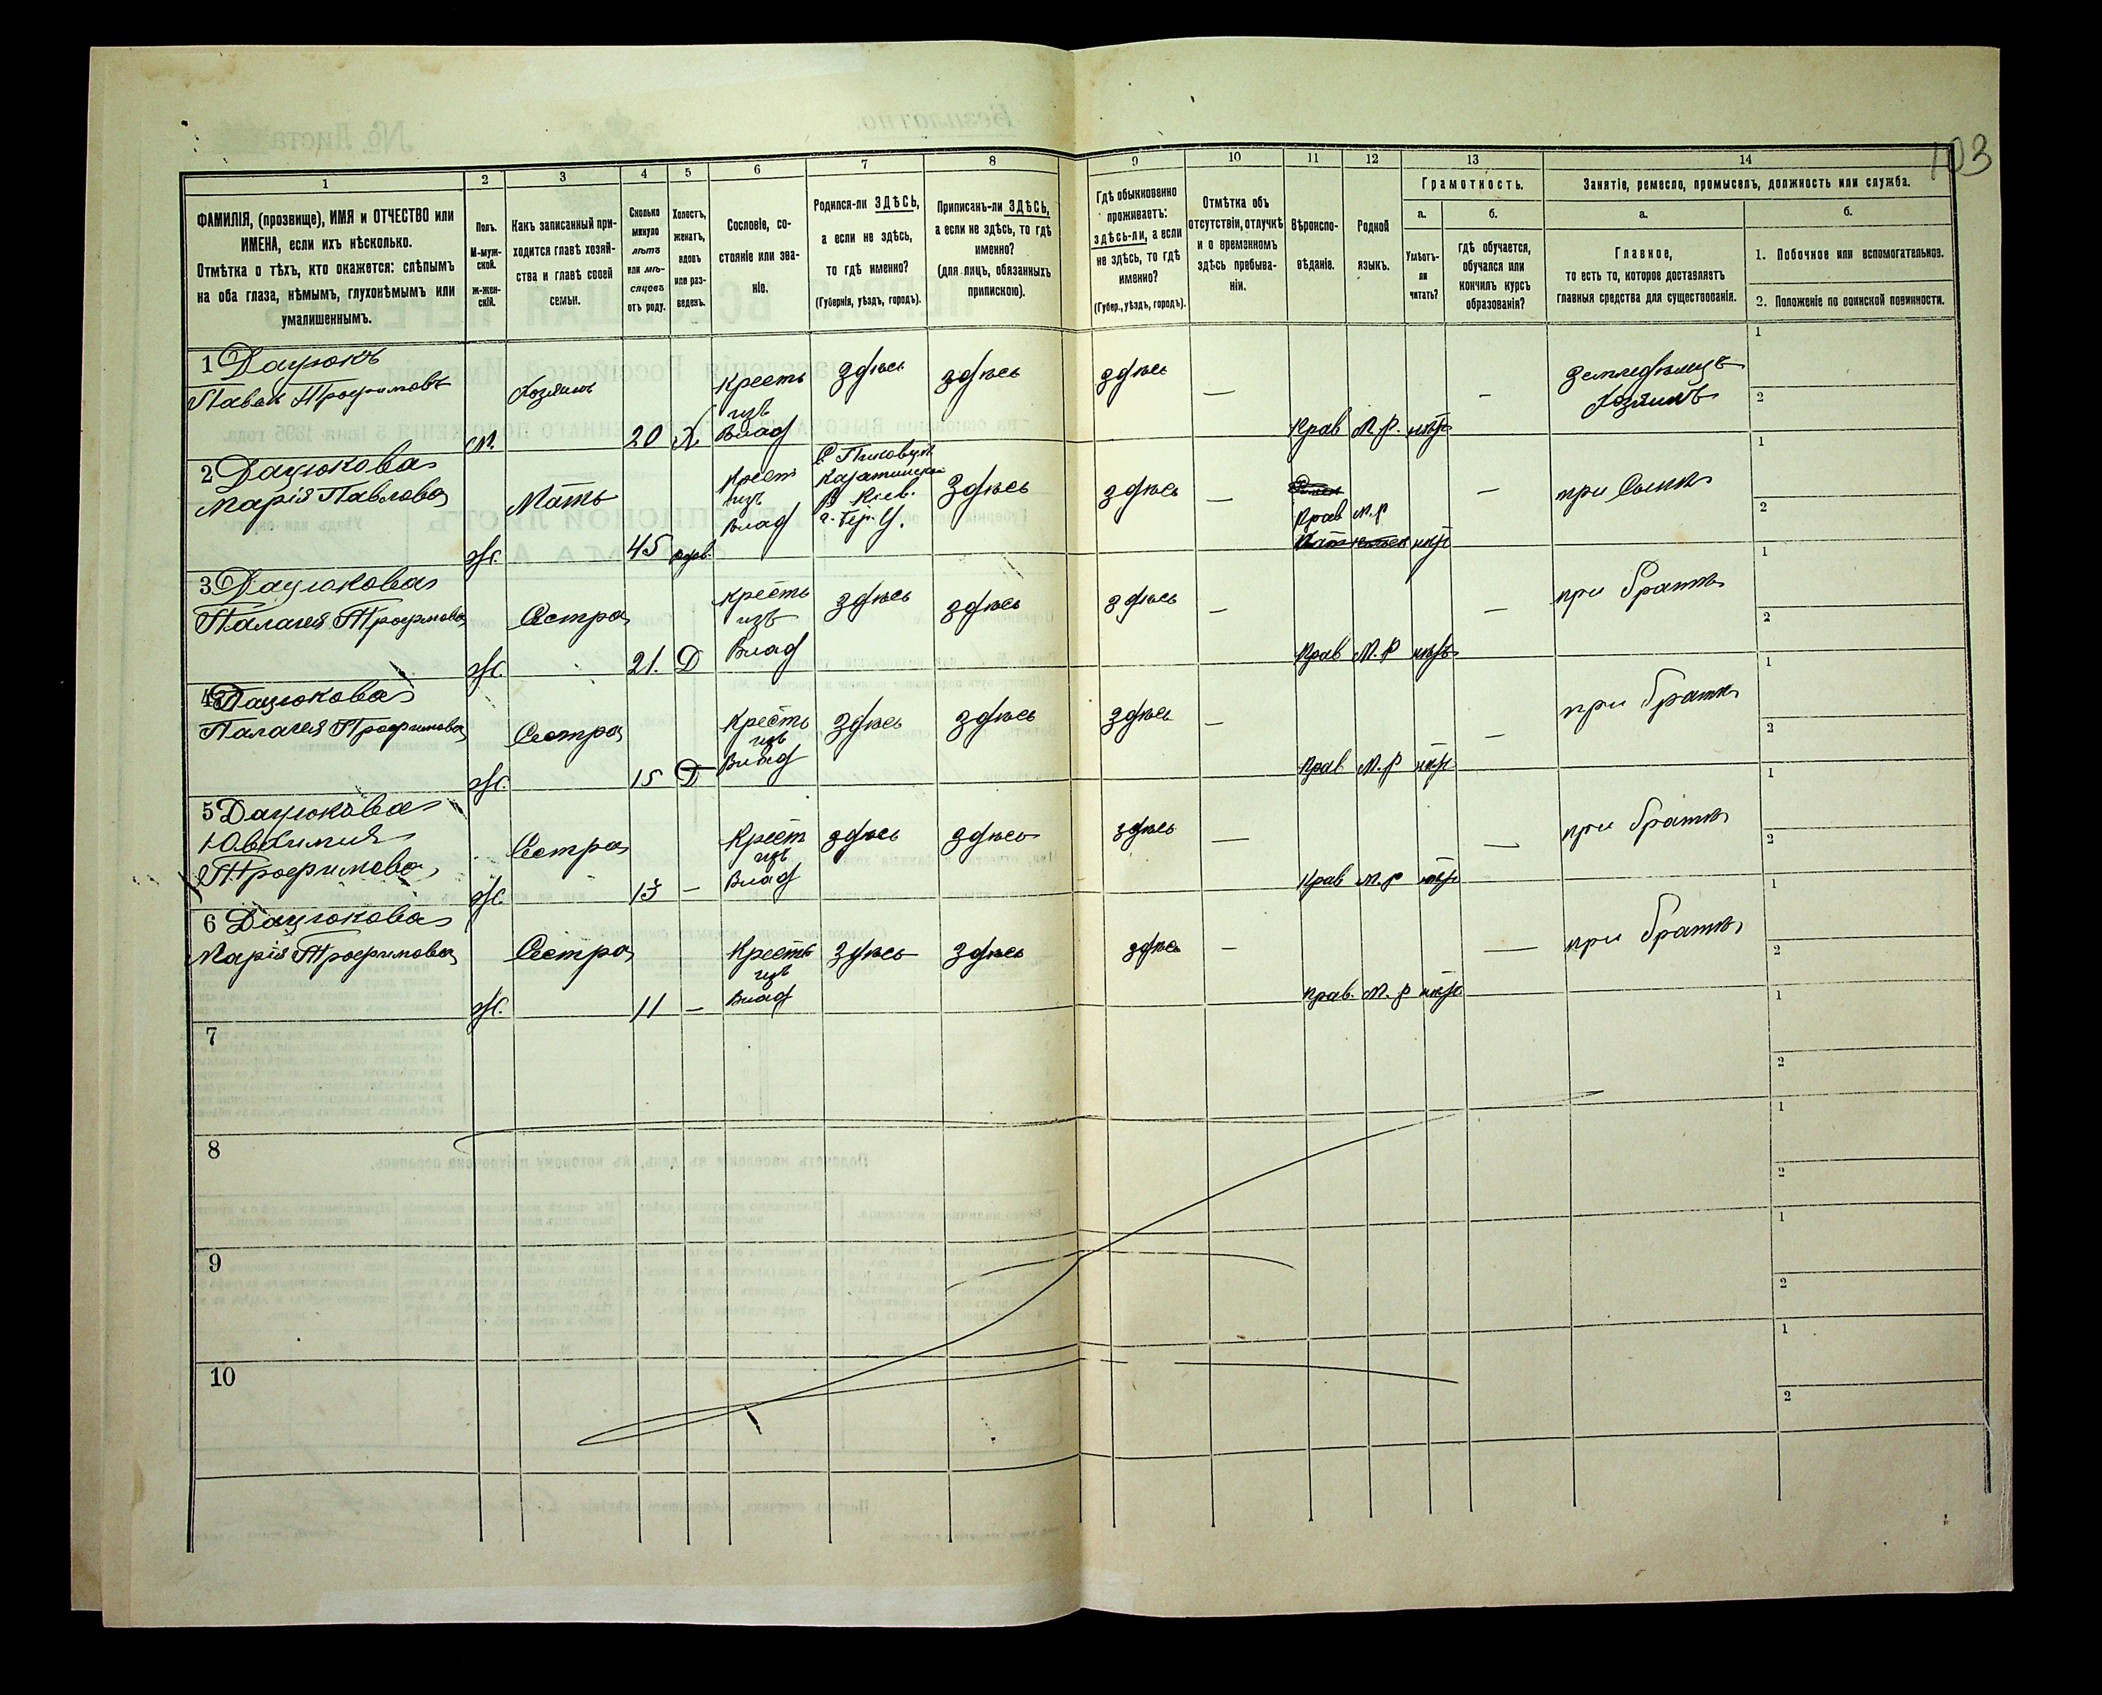 103
1
2
3
4
5
6
7
8
9
10
11
12
13
14
ФАМИЛІЯ, (прозвище), ИМЯ и ОТЧЕСТВО или
ИМЕНА, если ихъ нѣсколько.
Отмѣтка о тѣхъ, кто окажется: слѣпымъ
на оба глаза, нѣмымъ, глухонѣмымъ или
умалишеннымъ.
Полъ.
М-муж-
ской.
ж-жен-
скій.
Какъ записанный при-
ходится главѣ хозяй-
ства и главѣ своей
семьи.
Сколько
минуло
лѣтъ
или мѣ-
сяцевъ
отъ роду.
Холостъ,
женатъ,
вдовъ
или раз-
веденъ.
Сословіе, со-
стояніе или зва-
ніе.
Родился-ли ЗДѢСЬ,
а если не здѣсь,
то гдѣ именно?
(Губернія, уѣздъ, городъ).
Приписанъ-ли ЗДѢСЬ,
а если не здѣсь, то гдѣ
именно?
(для лицъ, обязанныхъ
припискою).
Гдѣ обыкновенно
проживаетъ:
здѣсь-ли, а если
не здѣсь, то гдѣ
именно?
(Губер., уѣздъ, городъ).
Отмѣтка объ
отсутствіи, отлучкѣ
и о временномъ
здѣсь пребыва-
ніи.
Вѣроиспо-
вѣданіе.
Родной
языкъ.
Грамотность.
а.
Умѣетъ-
ли
читать?
б.
гдѣ обучается,
обучался или
кончилъ курсъ
образованія?
Занятіе, ремесло, промыселъ, должность или служба.
а.
Главное,
то есть то, которое доставляетъ
главныя средства для существованія.
б.
1. Побочное или вспомогательное.
2. Положеніе по воинской повинности.
1 Дацюкъ
Павел Трофимовъ
м.
Хозяинъ
20
Х
Кресть
изъ
Влад
здѣсь
здѣсь
здѣсь
—
Прав
М.Р.
нѣтъ
—
земледѣлецъ
Хозяинъ
1
2
2 Дацюкова
Марія Павлова
Ж.
Мать
45
вдов.
Крест
изъ
Влад
Здѣсь
здѣсь
—
Прав
М.Р
нѣт
—
при Сынѣ
1
2
3 Дацюкова
Палагея Трофимова
Ж.
Сестра
21.
Д
Кресть
изъ
Влад
здѣсь
здѣсь
здѣсь
—
Прав
М.Р
нѣтъ
—
при братѣ
1
2
4 Дацюкова
Палагея Трофимова
Ж.
Сестра
15
Д
Кресть
изъ
Влад
здѣсь
здѣсь
здѣсь
—
Прав
М.Р
нѣт
—
при братѣ
1
2
5 Дацюкова
Трофимова
Ж.
Сестра
13
—
Крест
изъ
Влад
здѣсь
здѣсь
здѣсь
—
Прав
М.Р
нѣт
—
при братѣ
1
2
6 Дацюкова
Марія Трофимова
Ж.
Сестра
11
—
Кресть
изъ
Влад
здѣсь
здѣсь
здѣсь
—
прав.
М.Р
нѣт
—
при братѣ
1
2
7
1
2
8
1
2
9
1
2
10
1
2